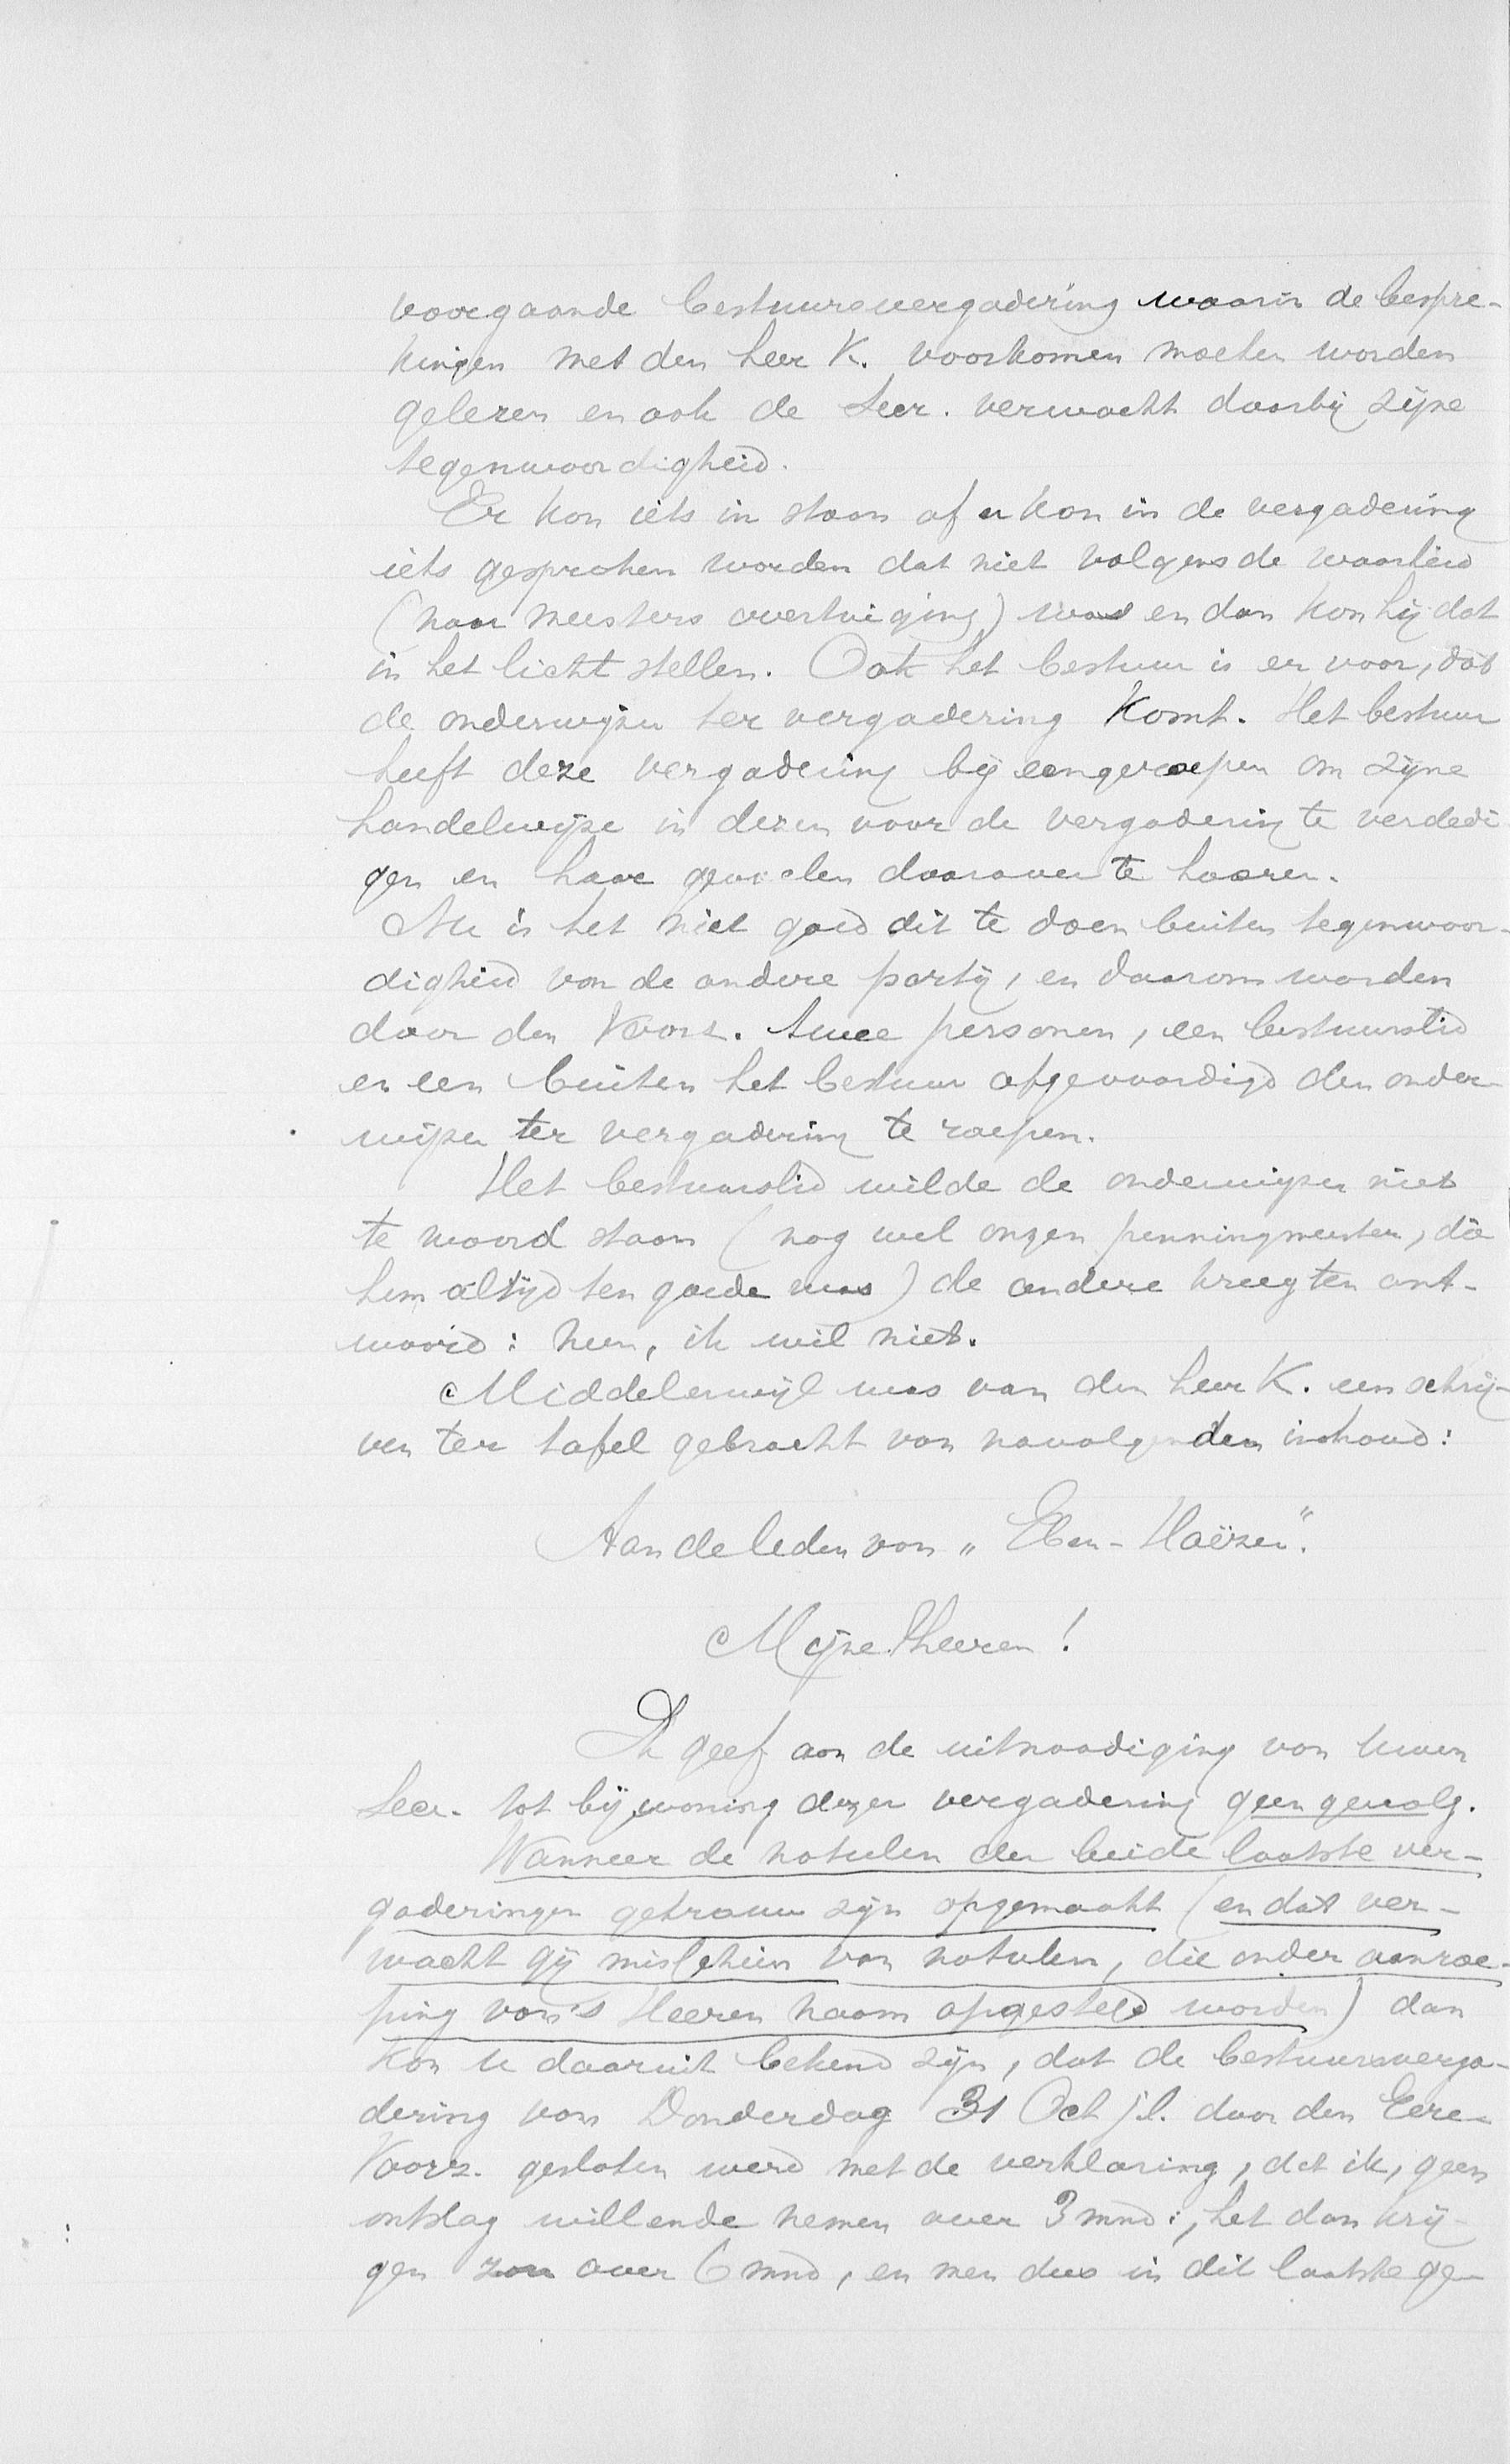 voorgaande bestuursvergadering waarin de bespre-
kingen met den heer K. voorkomen moeten worden
gelezen en ook de Secr. verwacht daarbij zijne
tegenwoordigheid.
Er kon iets in staan of er kon in de vergadering
iets gesproken worden dat niet volgens de waarheid
(naar meesters overtuiging) was en dan kon hij dat
in het licht stellen. Ook het bestuur is er voor, dat
de onderwijzer ter vergadering komt. Het bestuur
heeft deze vergadering bij eengeroepen om zijne
handelwijze in dezen voor de vergadering te verdedi
gen en haar gevoelen daarover te hooren.
Nu is het niet goed dit te doen buiten tegenwoor-
digheid van de andere partij, en daarom worden
door den Voorz. twee personen, een bestuurslid
en een buiten het bestuur afgevaardigd den onder-
wijzer ter vergadering te roepen.
Het bestuurslid wilde de onderwijzer niet
te woord staan (nog wel onzen penningmeester, die
hem altijd ten goede was) de andere kreeg ten ant-
woord: neen, ik wil niet.
Middelerwijl was van den heer K. een schrij-
ven ter tafel gebracht van navolgenden inhoud:
Aan de leden van „Eben-Haëzer".
Mijne Heeren!
Ik geef aan de uitnoodiging van Uwen
Secr. tot bijwoning dezer vergadering geen gevolg.
Wanneer de notulen der beide laatste ver-
gaderingen getrouw zijn opgemaakt (en dat ver-
wacht gij misschien van notulen, die onder aanroe-
ping van 's Heeren naam opgesteld worden) dan
kon U daaruit bekend zijn, dat de bestuursverga-
dering van Donderdag 31 Oct j.l. door den Eere-
Voorz. gesloten werd met de verklaring, dat ik, geen
ontslag willende nemen over 3 mnd:, het dan krij-
gen zou over 6 mnd, en men dus in dit laatste ge-